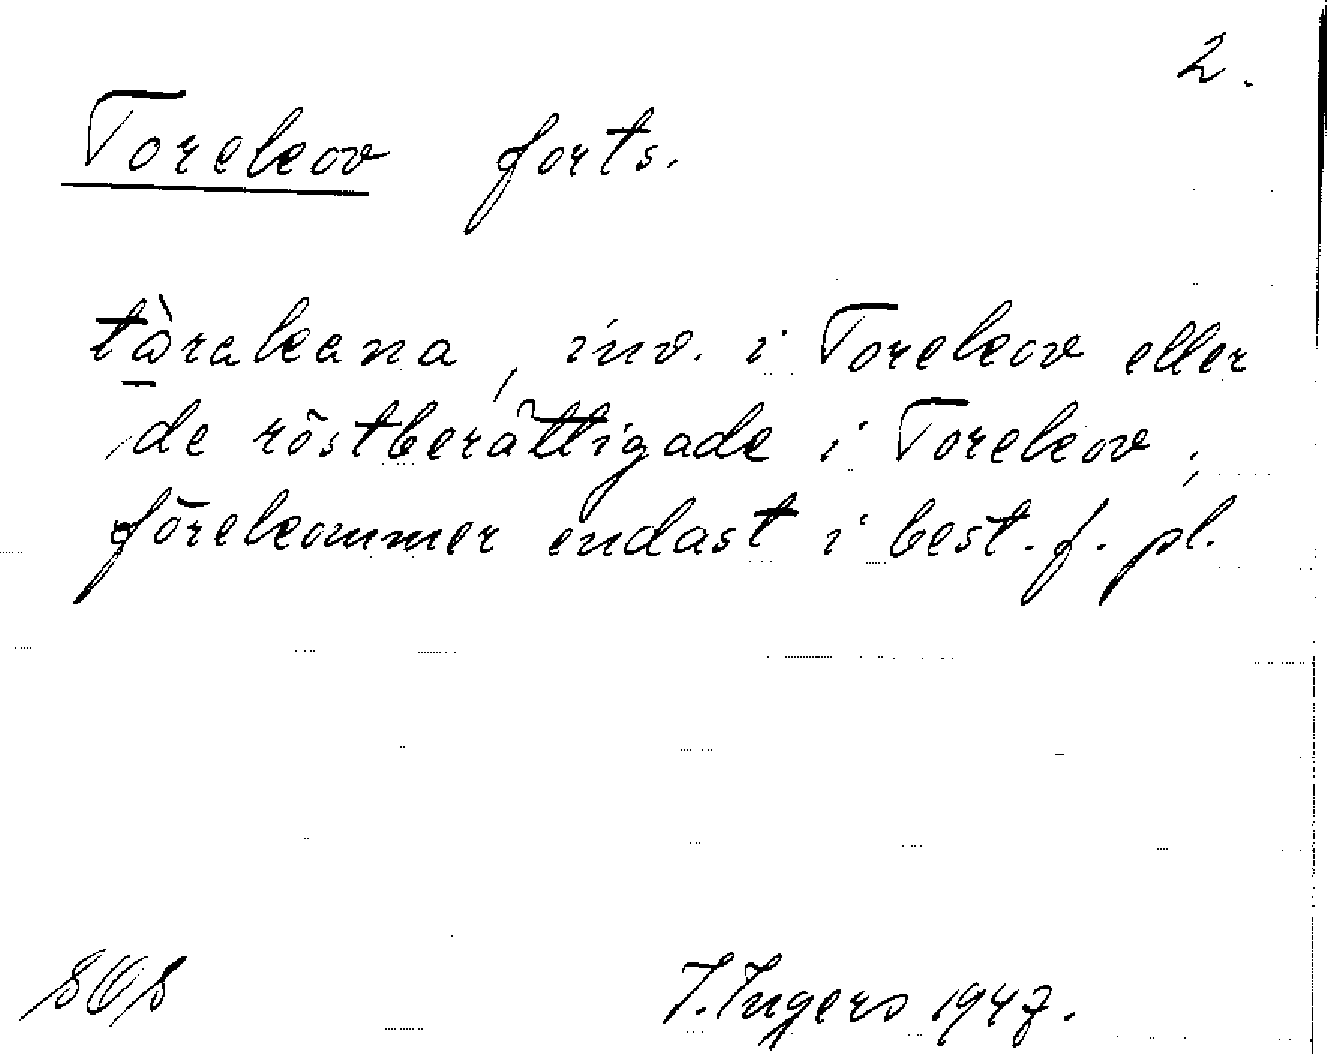 2.
Torekov forts.
tå̀rakana, inv. i Torekov eller
de röstberättigade i Torekov;
förekommer endast i best. f. pl.
SOS
I. Ingers 1947.